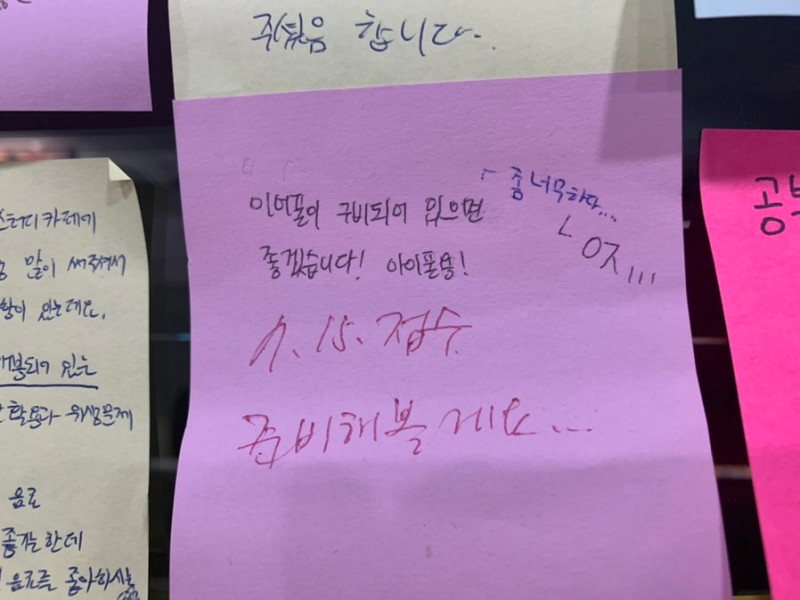 주셨음 합니다.
이어폰이 구비되어 있으면
좋겠습니다! 아이폰용!
「 좀 너무하다...
ㄴ ㅇㅈ,,,
7. 15. 접수
준비해볼게요...
스터디카페에
말이 써주셔서
황이 있는데요.
되어 있는
활용과 위생문제
음료
좋기는한데
음료를 좋아하시는
공부